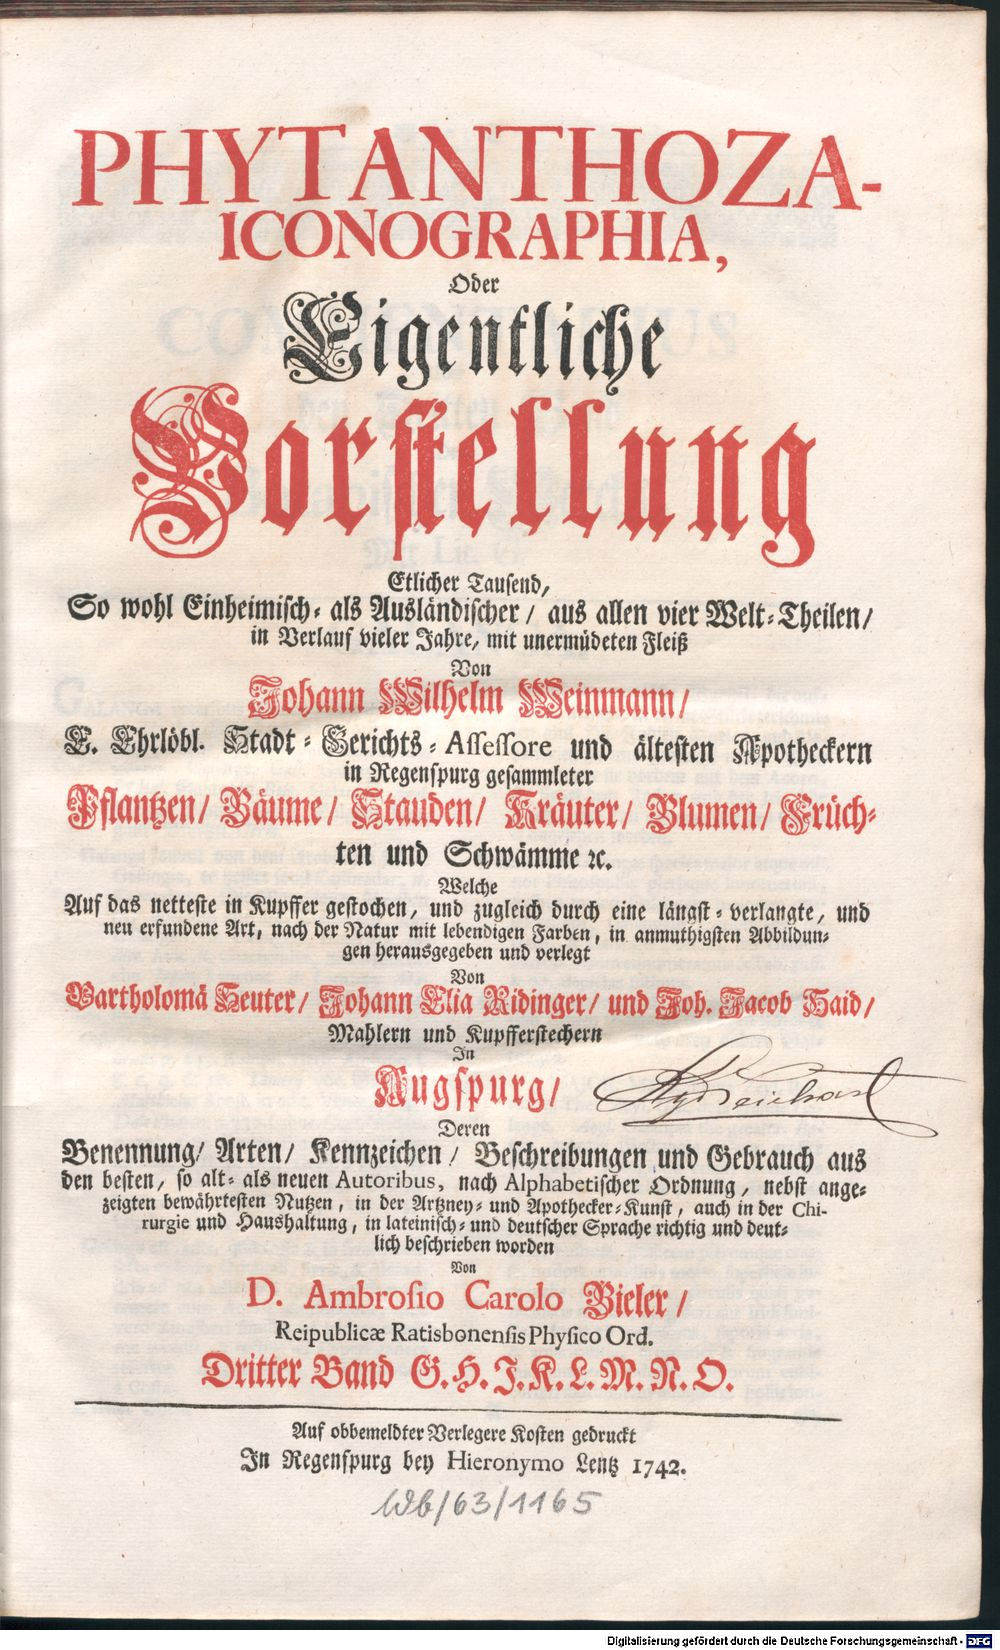 PHYTANTHOZA-
ICONOGRAPHIA,
Oder
Eigentliche
Vorstellung
Etlicher Tausend,
So wohl Einheimisch- als Ausländischer/ aus allen vier Welt-Theilen/
in Verlauf vieler Jahre, mit unermüdeten Fleiß
Von
Johann Wilhelm Weinmann/
E. Ehrlöbl. Stadt-Gerichts-Assessore und ältesten Apotheckern
in Regenspurg gesammleter
Pflantzen/ Bäume/ Stauden/ Kräuter/ Blumen/ Früch-
ten und Schwämme ꝛc.
Welche
Auf das netteste in Kupffer gestochen, und zugleich durch eine längst-verlangte, und
neu erfundene Art, nach der Natur mit lebendigen Farben, in anmuthigsten Abbildun-
gen herausgegeben und verlegt
Von
Bartholomä Seuter/ Johann Elia Ridinger/ und Joh. Jacob Haid/
Mahlern und Kupfferstechern
In
Augspurg/
Deren
Benennung/ Arten/ Kennzeichen/ Beschreibungen und Gebrauch aus
den besten, so alt- als neuen Autoribus, nach Alphabetischer Ordnung, nebst ange-
zeigten bewährtesten Nutzen, in der Artzney- und Apothecker-Kunst, auch in der Chi-
rurgie und Haushaltung, in lateinisch- und deutscher Sprache richtig und deut-
lich beschrieben worden
Von
D. Ambrosio Carolo Bieler/
Reipublicæ Ratisbonensis Physico Ord.
Dritter Band G. H. J. K. L. M. N. O.
Auf obbemeldter Verlegere Kosten gedruckt
In Regenspurg bey Hieronymo Lentz 1742.
Wb/63/1165
Digitalisierung gefördert durch die Deutsche Forschungsgemeinschaft - DFG